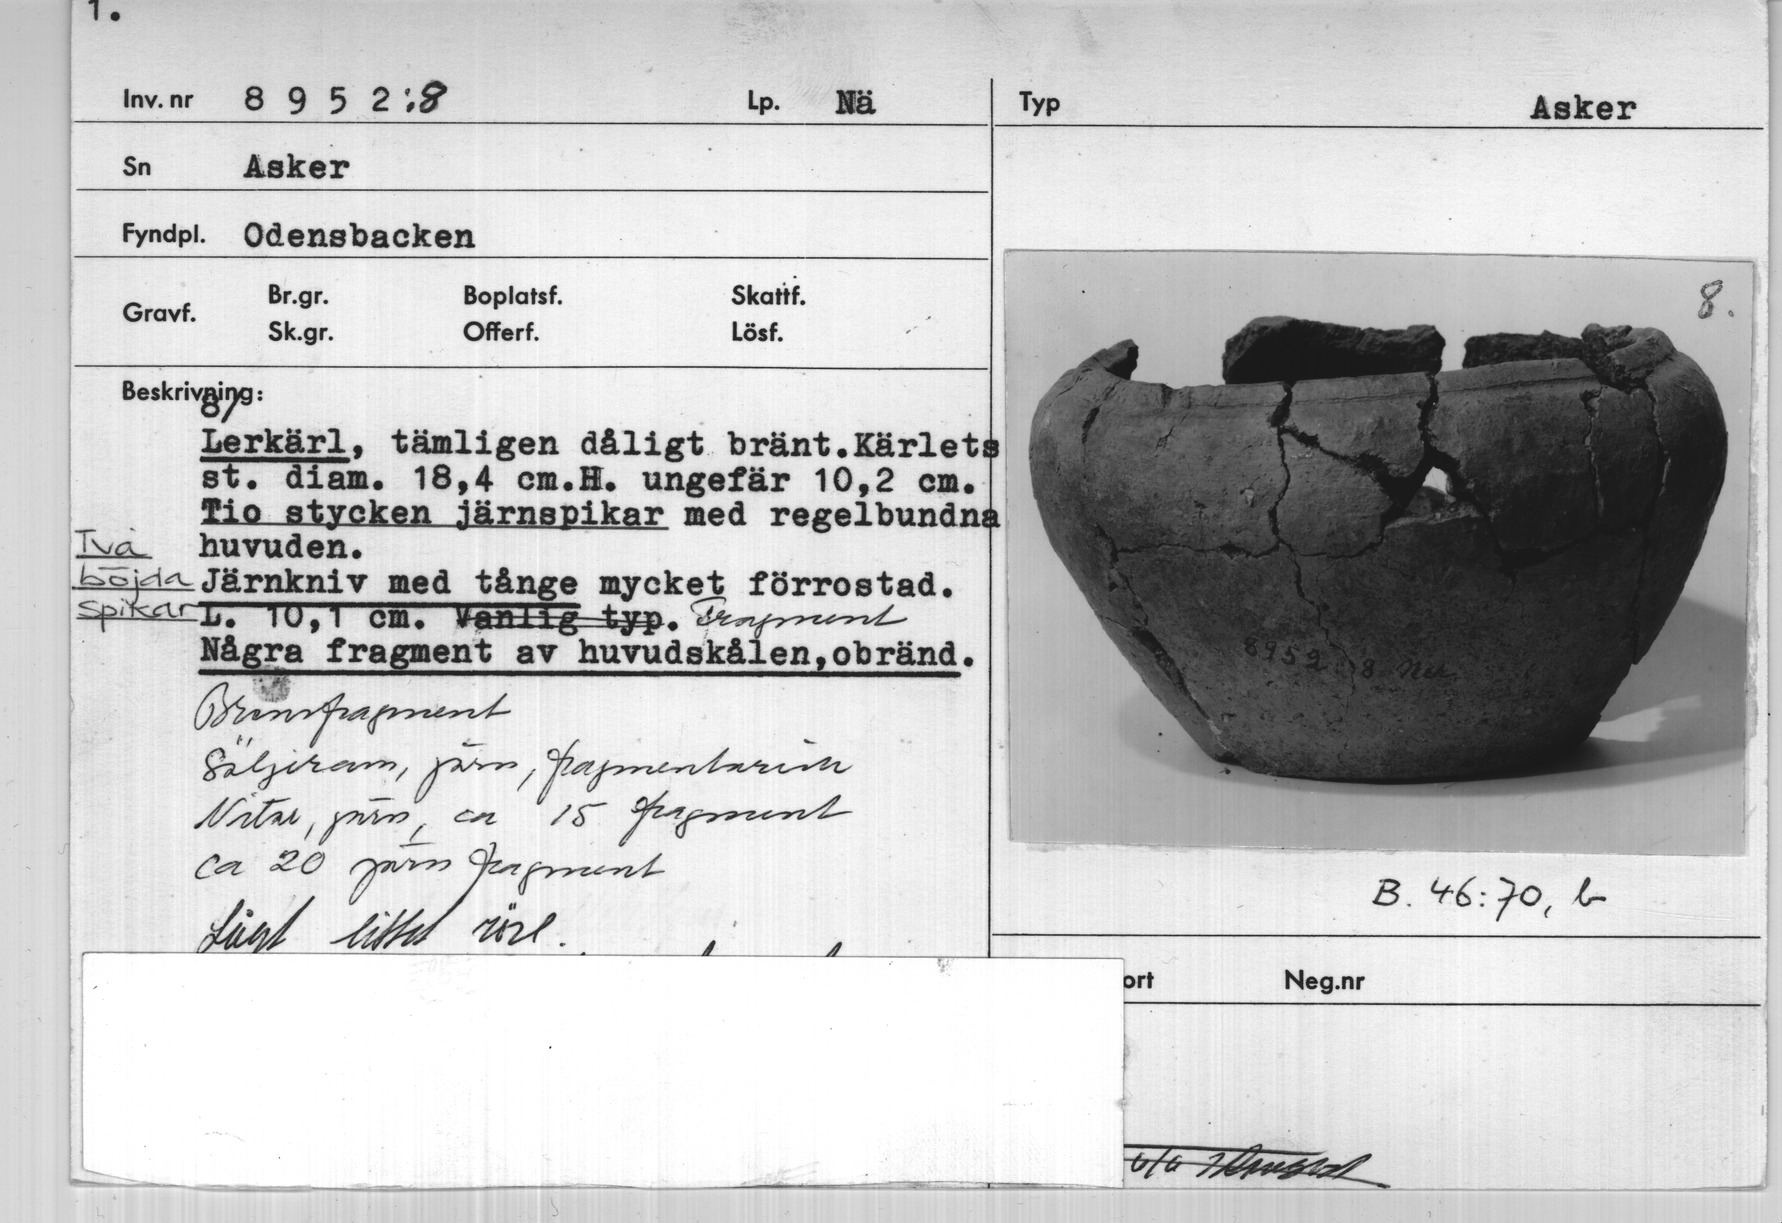 1.
Inv. nr 8 9 5 2:8 Lp. Nä
Sn Asker
Fyndpl. Odensbacken
Gravf. Br.gr. Boplatsf. Skattf.
Sk.gr. Offerf. Lösf.
Beskrivning:
8/
Lerkärl, tämligen dåligt bränt.Kärlets
st. diam. 18,4 cm.H. ungefär 10,2 cm.
Tio stycken järnspikar med regelbundna
huvuden.
Två
böjda
spikar
Järnkniv med tånge mycket förrostad.
L. 10,1 cm. Vanlig typ. Fragment
Några fragment av huvudskålen,obränd.
Bronsfragment
Söljeram, järn, fragmentarisk
Nitar, järn, ca 15 fragment
ca 20 järn fragment
Lågt litet röse.
Typ Asker
8.
8952:8 Ner.
B. 46:70, b
ort Neg.nr